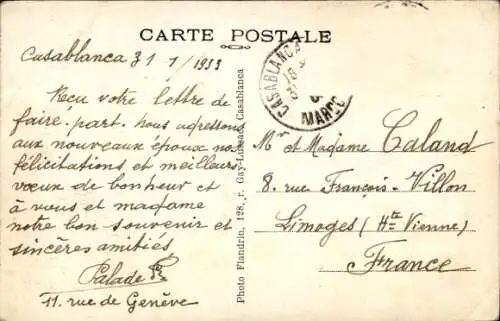 CARTE POSTALE
Casablanca 31 1/1933
Reçu votre lettre de
faire. part. nous adressons
aux nouveaux époux nos
félicitations et meilleurs
vœux de bonheur et
à vous et madame
notre bon souvenir et
sincères amitiés
Palade
11. rue de Genève
Photo Flandrin, 128, r. Gay-Lussac, Casablanca
CASABLANCA
MAROC
Mr et Madame Caland
8. rue François-Villon
Limoges (Hte Vienne)
France